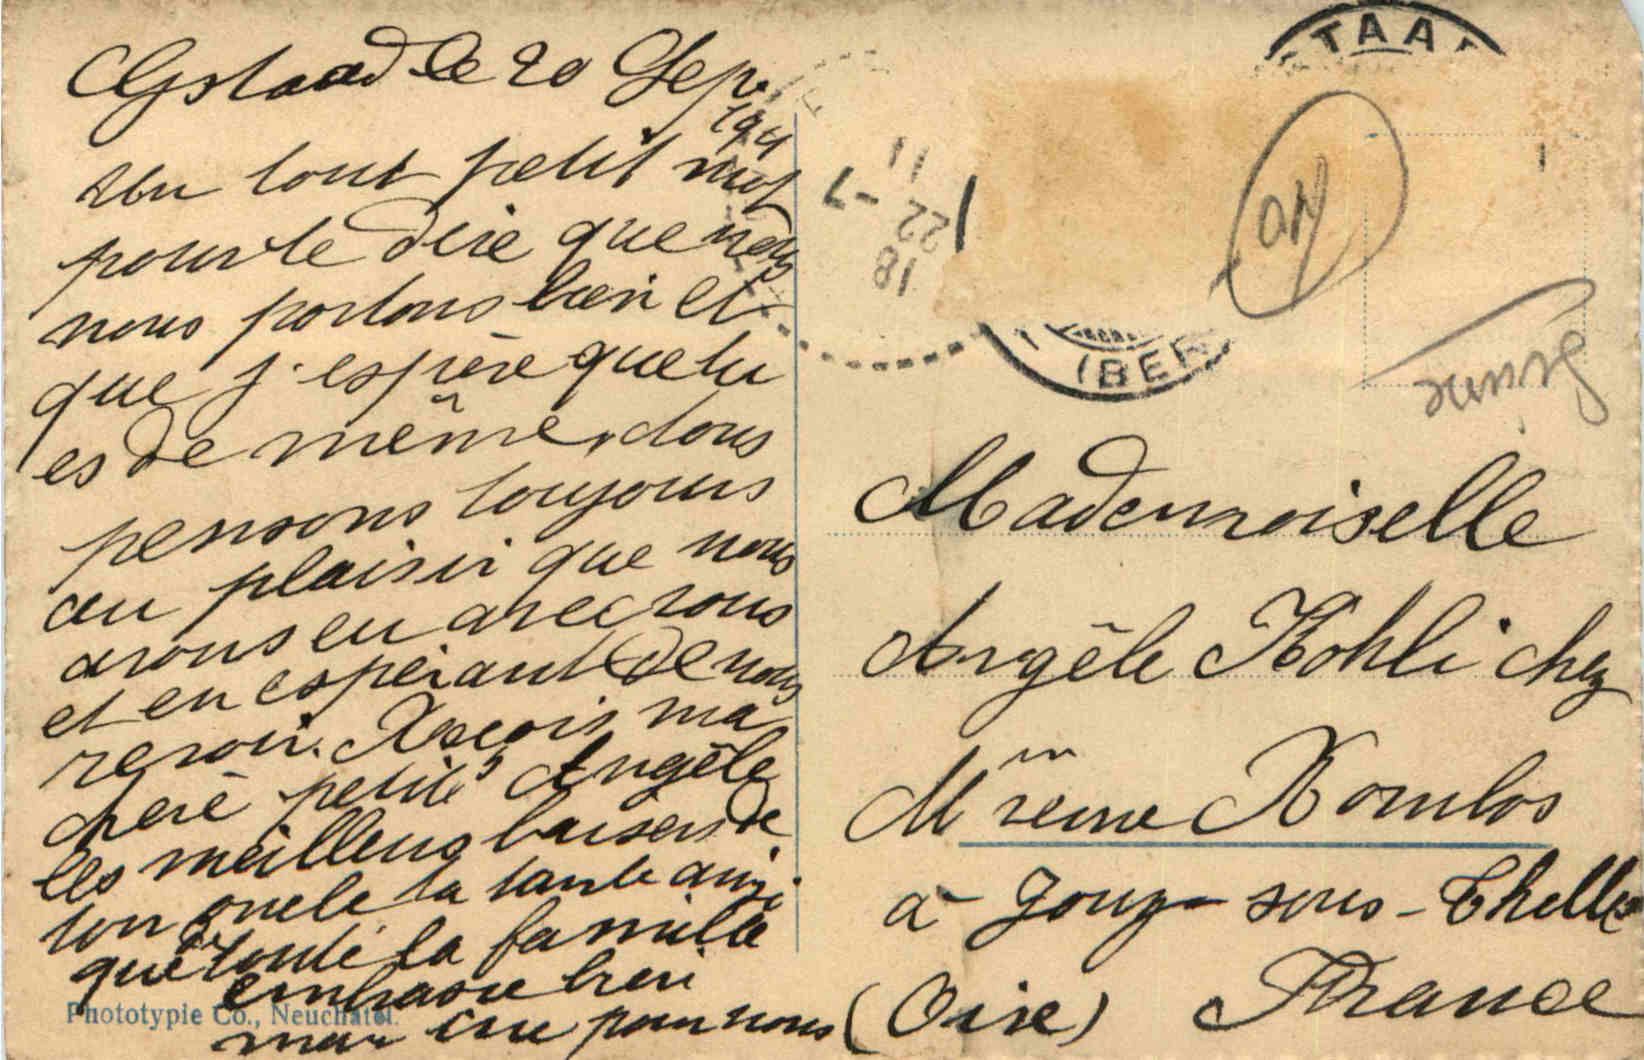 Gstaad le 20 Sep.
1911
un tout petit mot
pour te dire que nous
nous portons bien et
que j'espère que tu
es de même, nous
pensons toujours
au plaisir que nous
avons eu avec vous
et en espérant de nous
revoir. Reçois ma
chere petite Angêle
les meilleurs baisers de
ton oncle ta tante ainsi
que toute la famille
embrasse bien
pour nous
Phototypie Co., Neuchatel.
STAAD
18
22-7
11
(BER
Mademoiselle
Angêle Kohli chez
Mme veuve
à Jouy-sous-Thelle
(Oise) France